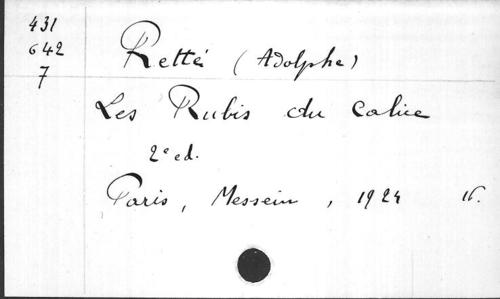 431
642
7
Retté (Adolphe)
Les Rubis du calice
2e ed.
Paris, Messein, 1924 16.